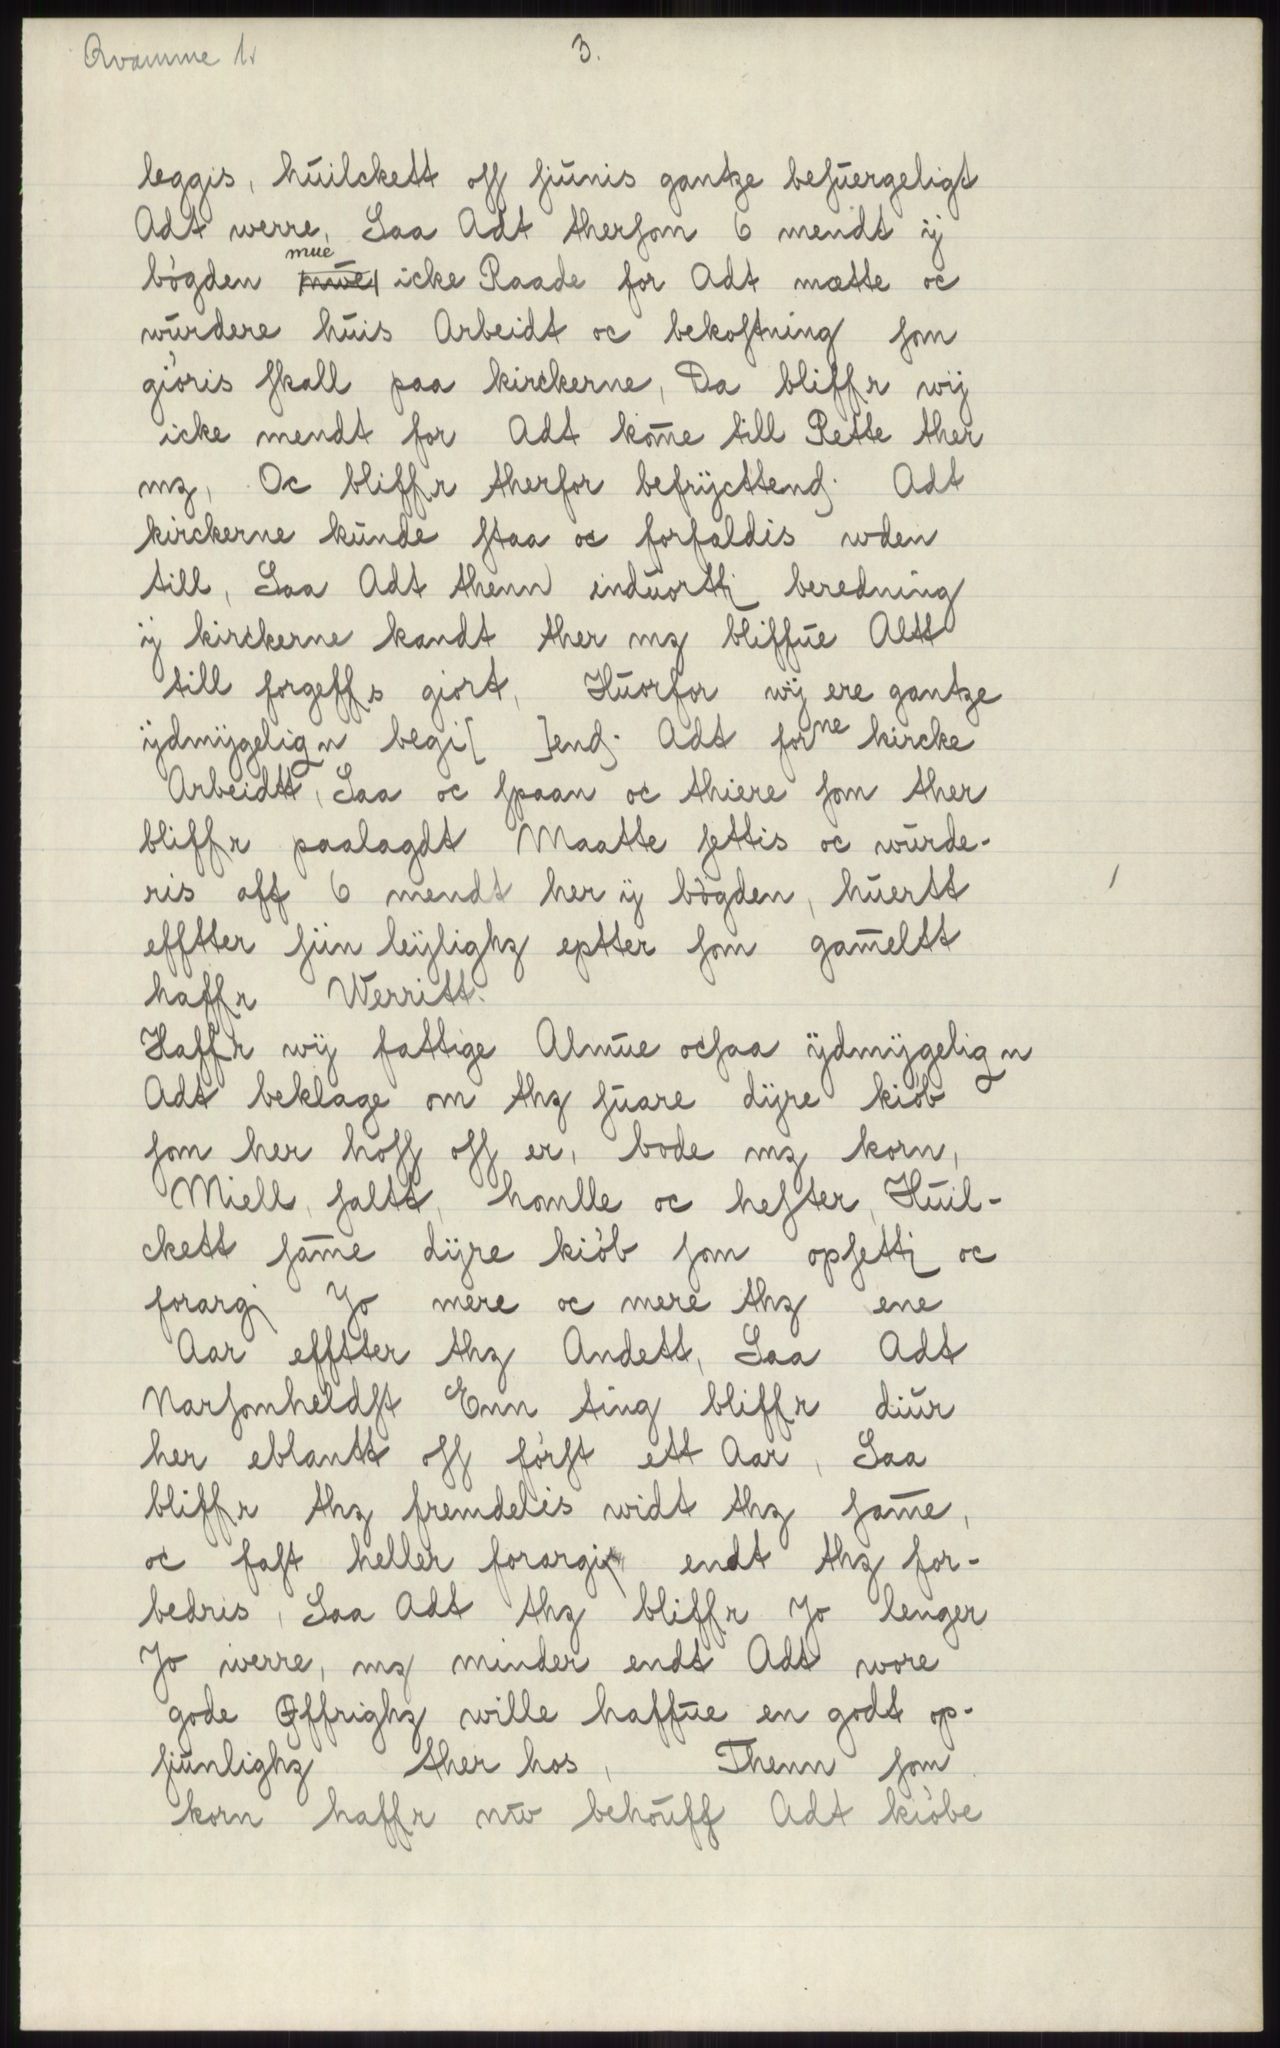 Qvamme 1.
3.
leggis, huilckett oss siunis gantze besuergeligt
Adt werre, Saa Adt thersom 6 mendt ij
bögden mue icke Raade for Adt mætte oc
wurdere huis Arbeidt oc bekostning som
giöris skall paa kirckerne, Da bliffr wij
icke mendt for Adt kom̄e till Rette ther
mz, Oc bliffr therfor befrijcttend. Adt
kirckerne kunde staa oc forfaldis wden
till, Saa Adt thenn induortj beredning
ij kirckerne kandt ther mz bliffue Altt
till forgeffs giort, Huorfor wij ere gantze
ijdmijgelign begi[ ]end. Adt forne kircke
Arbeidtt, Saa oc spaan oc thiere som ther
bliffr paalagdt Maatte settis oc wurde-
ris aff 6 mendt her ij bögden, huertt
efftter siin leijlighz eptter som gam̄eltt
haffr Werritt.
Haffr wij fattige Almue ocsaa ijdmijgelign
Adt beklage om thz suare dijre kiöb
som her hoss oss er, bode mz korn,
Miell, saltt, homlle oc hester, Huil-
ckett sam̄e dijre kiöb som opsettj oc
forargj Jo mere oc mere thz ene
Aar efftter thz Andett, Saa Adt
Narsomheldst Enn ting bliffr diur
her eblantt oss först ett Aar, Saa
bliffr thz fremdelis widt thz sam̄e,
oc fast heller forargis endt thz for-
bedris, Saa Adt thz bliffr Jo lenger
Jo werre, mz minder endt Adt wore
gode Øffrighz wille haffue en godt op-
siunlighz ther hos, Thenn som
korn haffr nw behouff Adt kiöbe